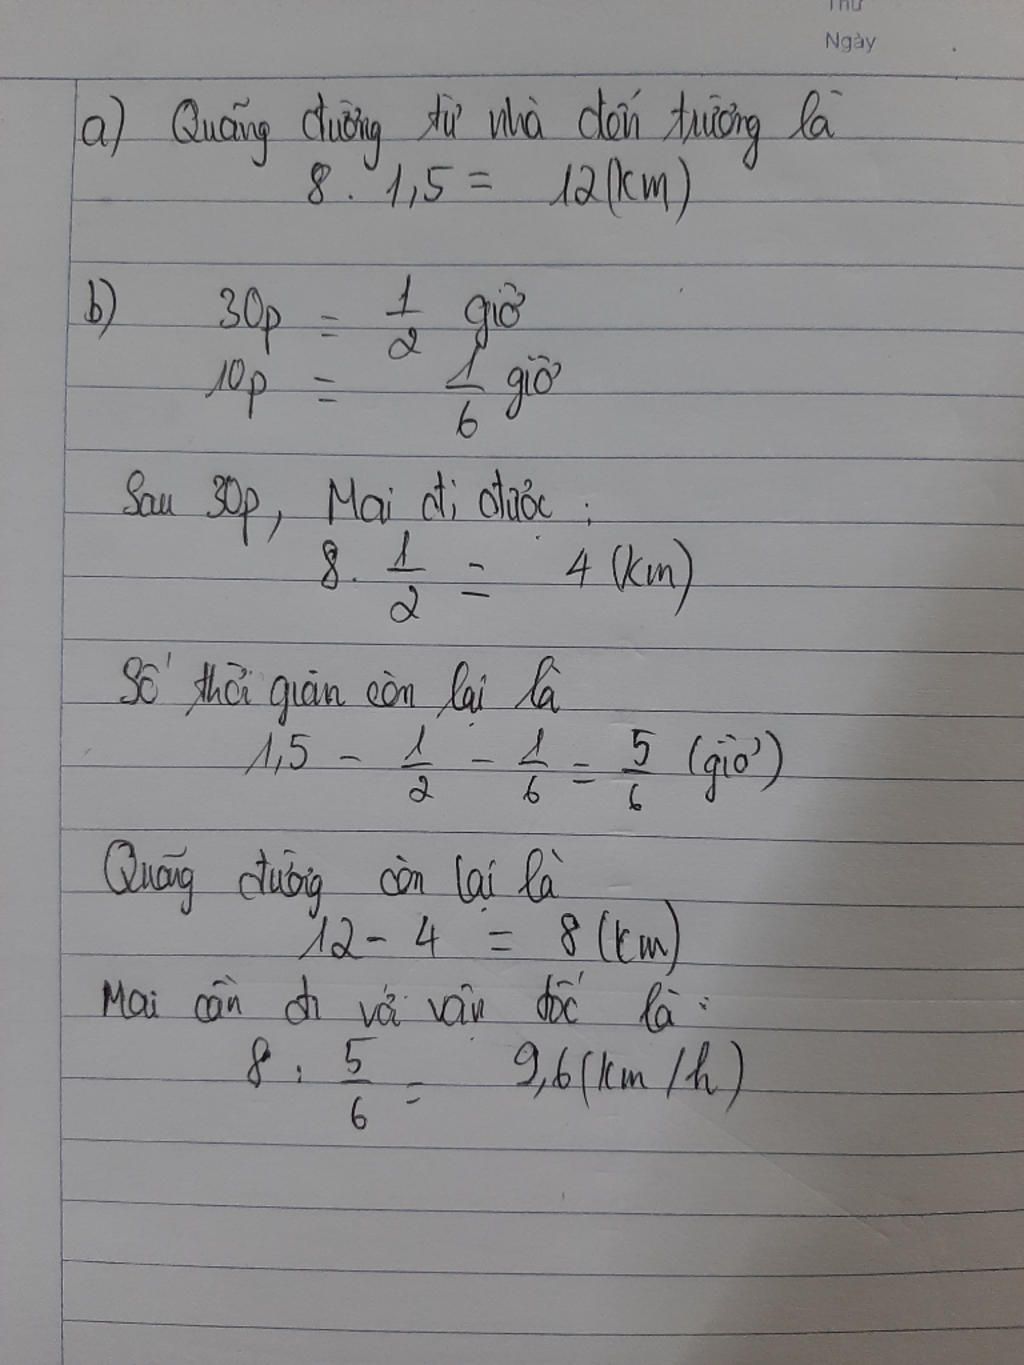 Thứ
Ngày
a) Quãng đường từ nhà đến trường là
8 . 1,5 = 12 (km)
b) 30p = 1/2 giờ
10p = 1/6 giờ
Sau 30p, Mai đi được :
8 . 1/2 = 4 (km)
Số thời gian còn lại là
1,5 - 1/2 - 1/6 = 5/6 (giờ)
Quãng đường còn lại là
12 - 4 = 8 (km)
Mai cần đi với vận tốc là :
8 : 5/6 = 9,6 (km/h)